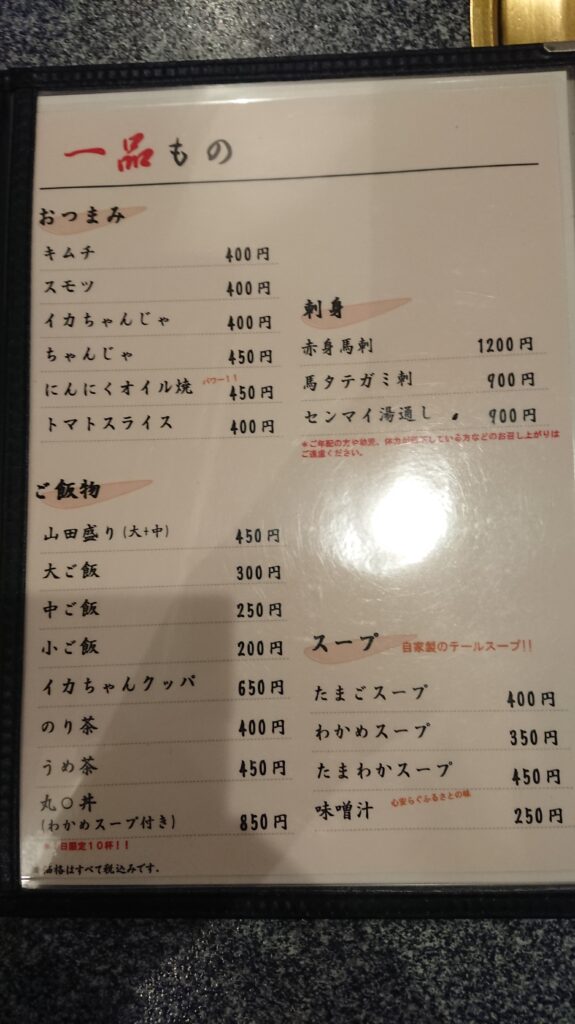 一品もの
おつまみ
キムチ 400円
スモツ 400円
イカちゃんじゃ 400円
ちゃんじゃ 450円
にんにくオイル焼 パワー!! 450円
トマトスライス 400円
ご飯物
山田盛り(大+中) 450円
大ご飯 300円
中ご飯 250円
小ご飯 200円
イカちゃんクッパ 650円
のり茶 400円
うめ茶 450円
丸〇丼
(わかめスープ付き) 850円
日限定10杯!!
価格はすべて税込みです。
刺身
赤身馬刺 1200円
馬タテガミ刺 900円
センマイ湯通し 900円
*ご年配の方や幼児、体力が低下している方などのお召し上がりは
ご遠慮ください。
スープ 自家製のテールスープ!!
たまごスープ 400円
わかめスープ 350円
たまわかスープ 450円
味噌汁 心安らぐふるさとの味 250円